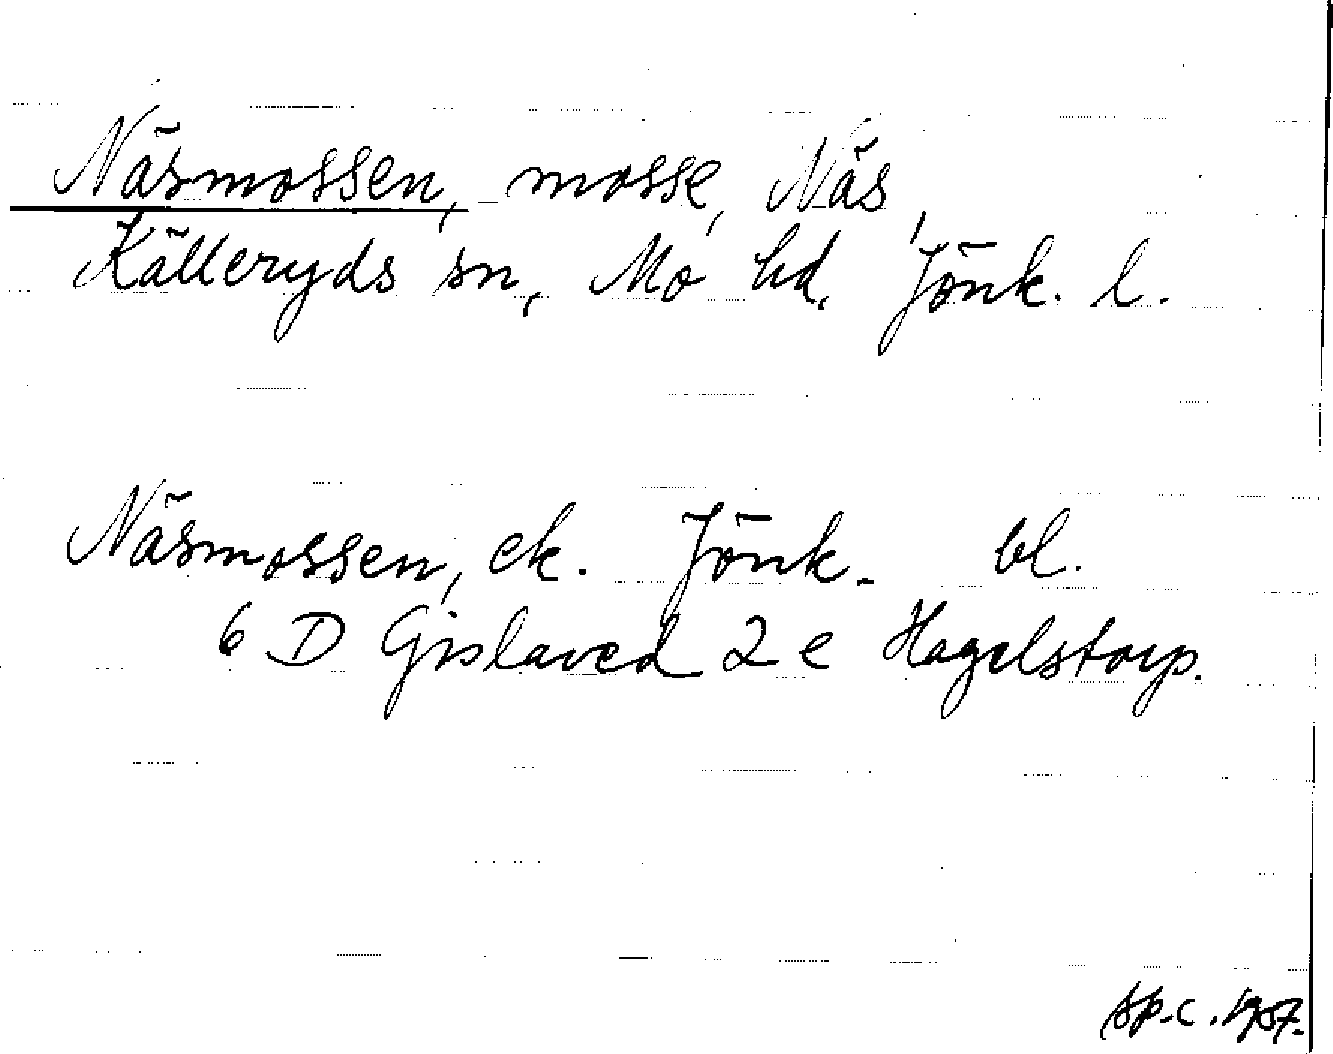 Näsmossen, mosse, Näs,
Källeryds sn, Mo hd, Jönk. l.
Näsmossen, ek. Jönk. bl.
6 D Gislaved 2 e Hagelstorp.